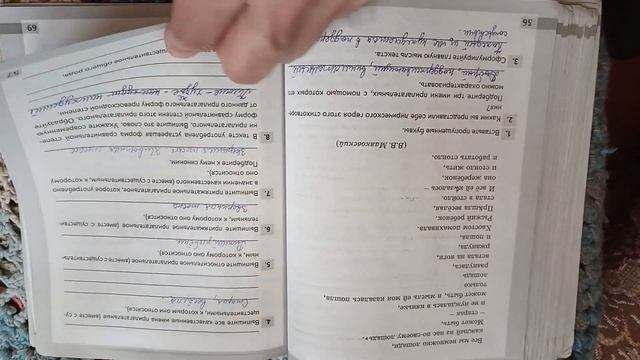 Все мы немножко лошади,
каждый из нас по-своему лошадь.
Может быть,
– старая –
и не нуждалась в няньке,
может быть, и мысль ей моя казалась пошла,
только
лошадь
рванулась,
встала на ноги,
ржанула
и пошла.
Хвостом помахивала.
Рыжий ребёнок.
Пришла весёлая,
стала в стойло.
И всё ей казалось –
она жеребёнок,
и стоило жить,
и работать стоило.
(В.В. Маяковский)
1. Вставьте пропущенные буквы.
2. Каким вы представили себе лирического героя этого стихотворе-
ния?
Подберите три имени прилагательных, с помощью которых его
можно охарактеризовать.
3. Сформулируйте главную мысль текста.
56
4. Выпишите все качественные имена прилагательные (вместе с су-
ществительными, к которым они относятся).
5. Выпишите относительное прилагательное (вместе с существитель-
ным, к которому оно относится).
6. Выпишите притяжательное прилагательное (вместе с существи-
тельным, к которому оно относится).
7. Выпишите притяжательное прилагательное, которое употреблено
в значении качественного (вместе с существительным, к которому
оно относится).
Подберите к нему синоним.
8. В тексте употреблена устаревшая форма сравнительной степе-
ни прилагательного. Выпишите это слово. Укажите современную
форму сравнительной степени этого прилагательного. Образуйте
от данного прилагательного форму превосходной степени.
существительное общего рода.
69